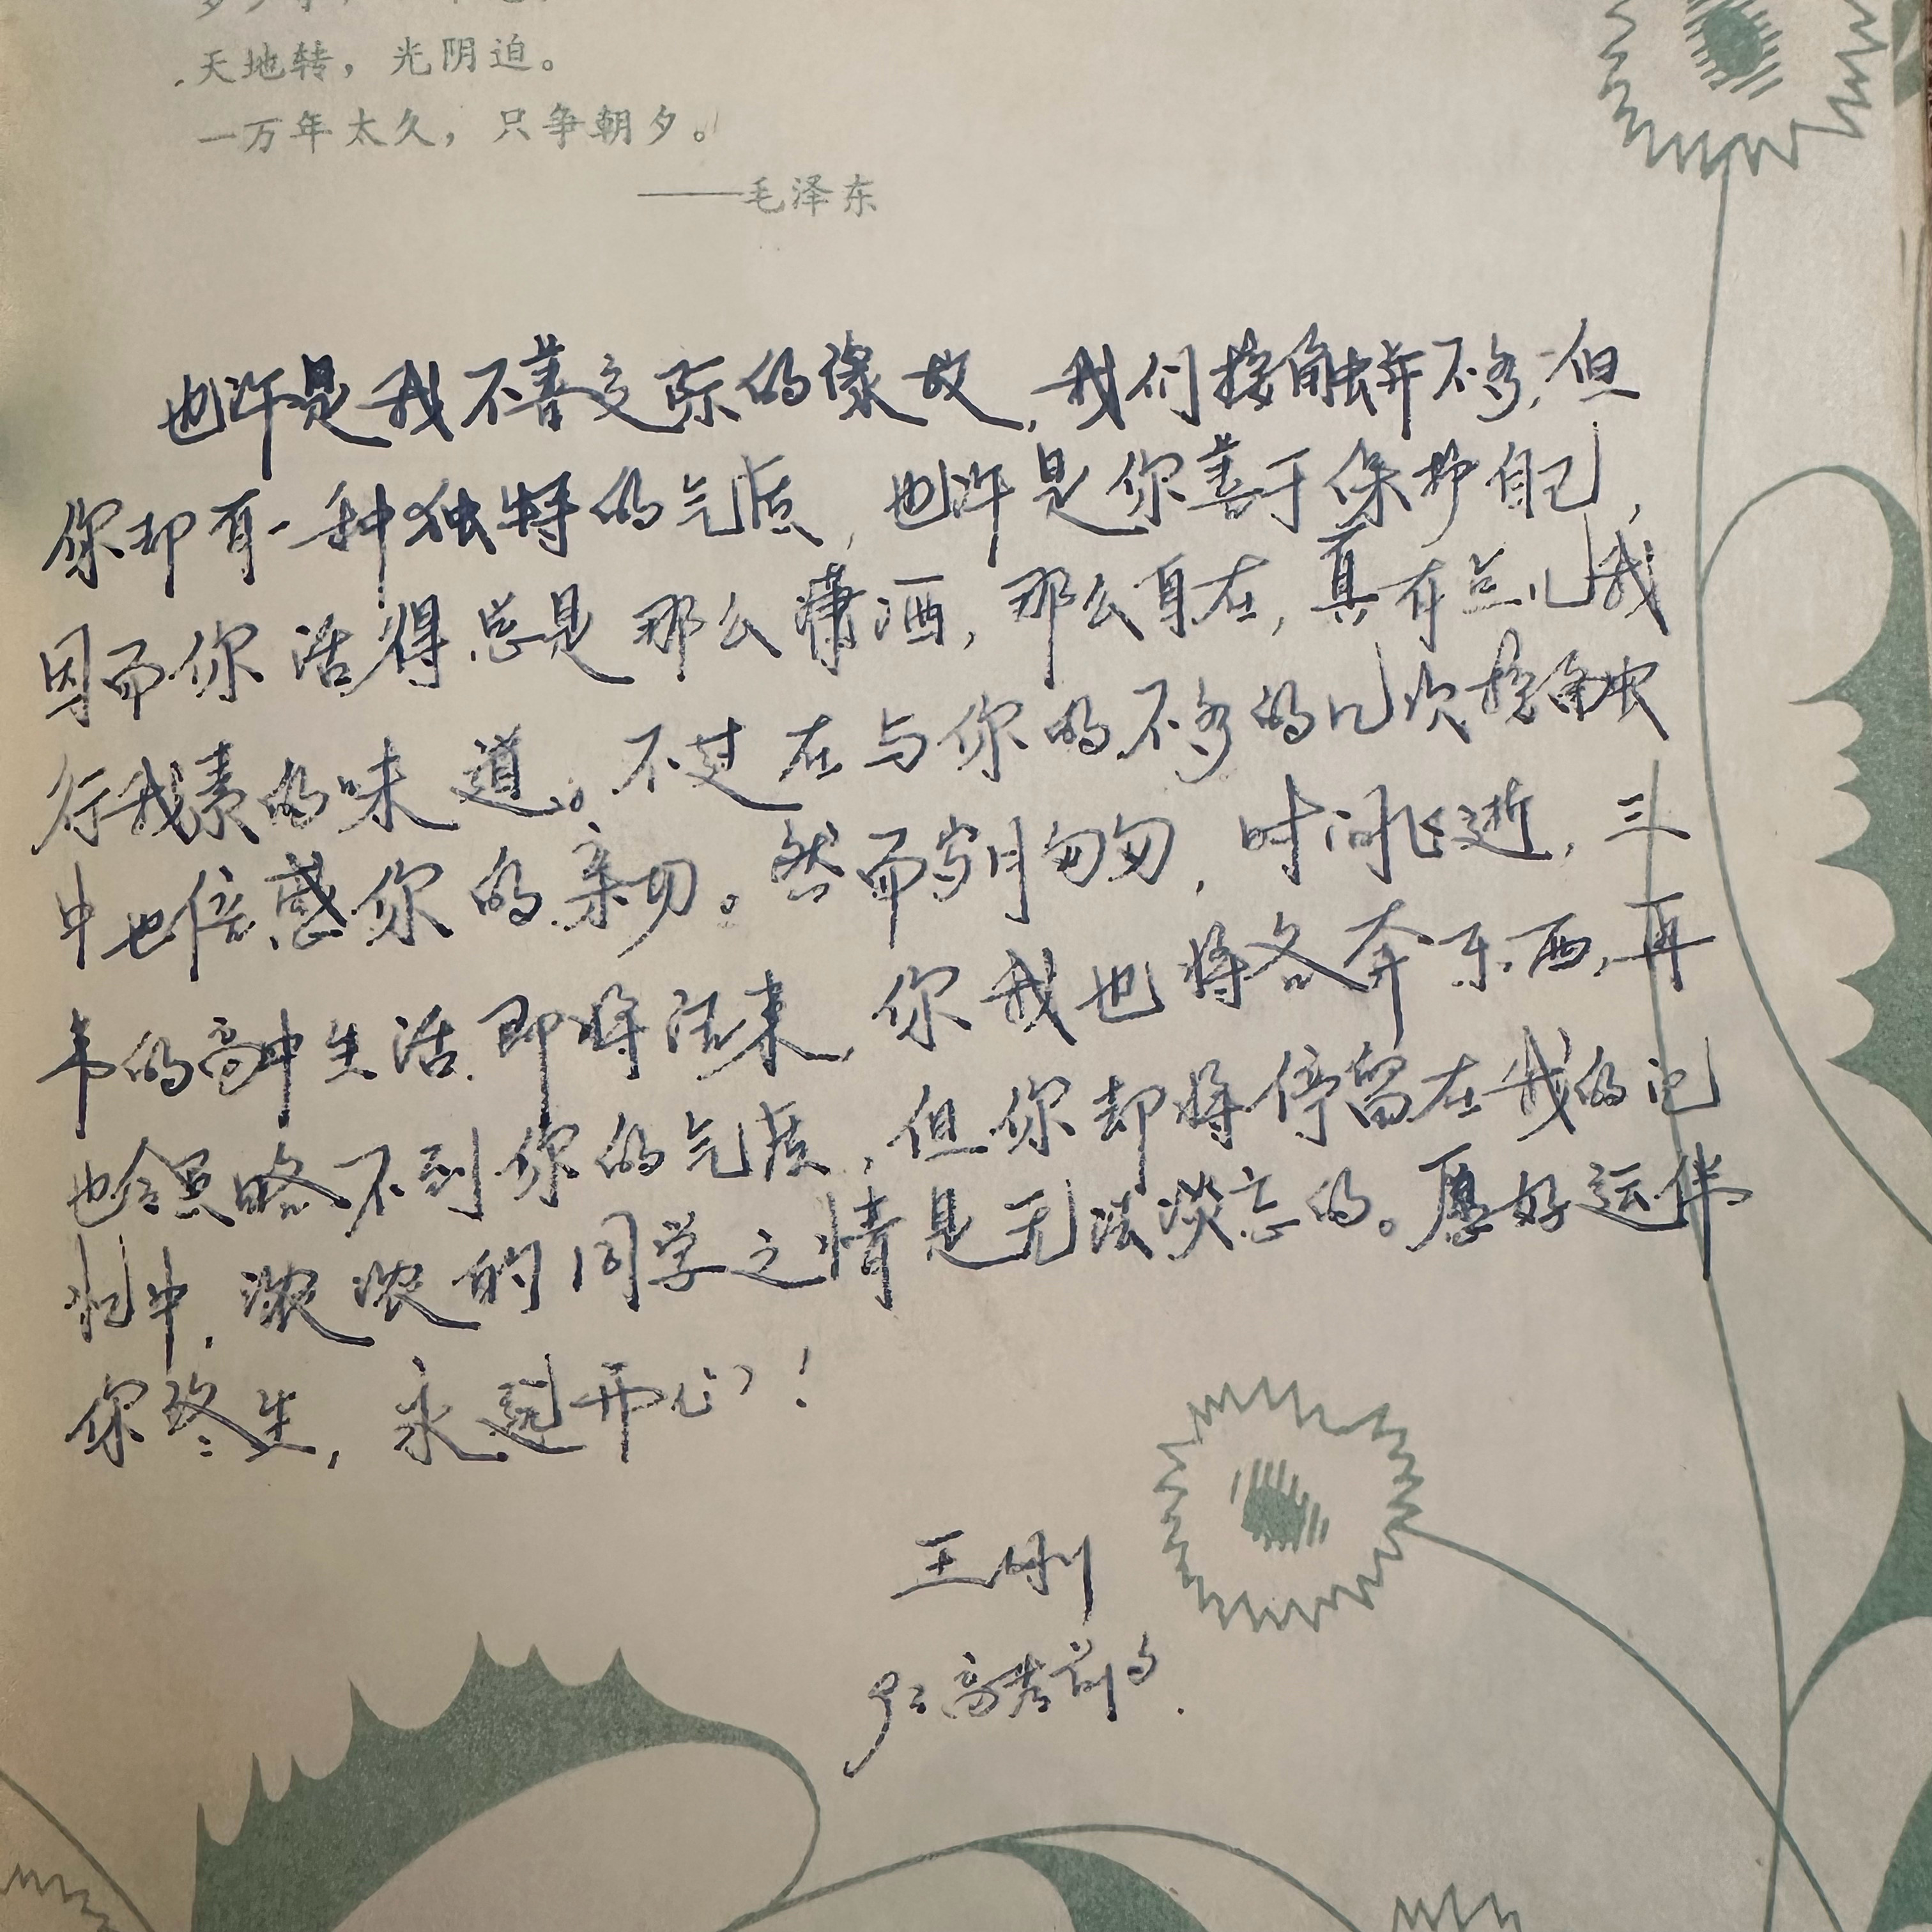 天地转，光阴迫。
一万年太久，只争朝夕。
——毛泽东
也许是我不善交际的缘故，我们接触并不多，但
你却有一种独特的气质，也许是你善于保护自己，
因而你活得总是那么潇洒，那么自在，真有点儿我
行我素的味道。不过在与你的不多的几次接触
中也倍感你的亲切。然而岁月匆匆，时间飞逝，三
年的高中生活即将结束，你我也将各奔东西，再
也领略不到你的气质，但你却将停留在我的记
忆中，浓浓的同学之情是无法淡忘的。愿好运伴
你终生，永远开心！
王刚
高考前夕.